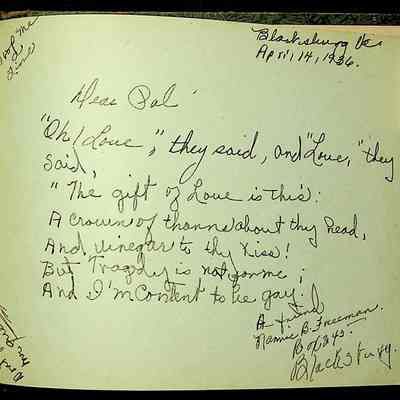 Drop me
a
line
Blacksburg Va.
April, 14, 1936.
Dear Pal
"Oh! Love", they said, and "Love," they
said,
"The gift of Love is this:
A crown of thorns about thy head,
And vinegar to thy kiss!
But Tragedy is not for me;
And I'm Content to be gay.
A friend
Nannie B. Freeman.
Box 245.
Blacksburg.